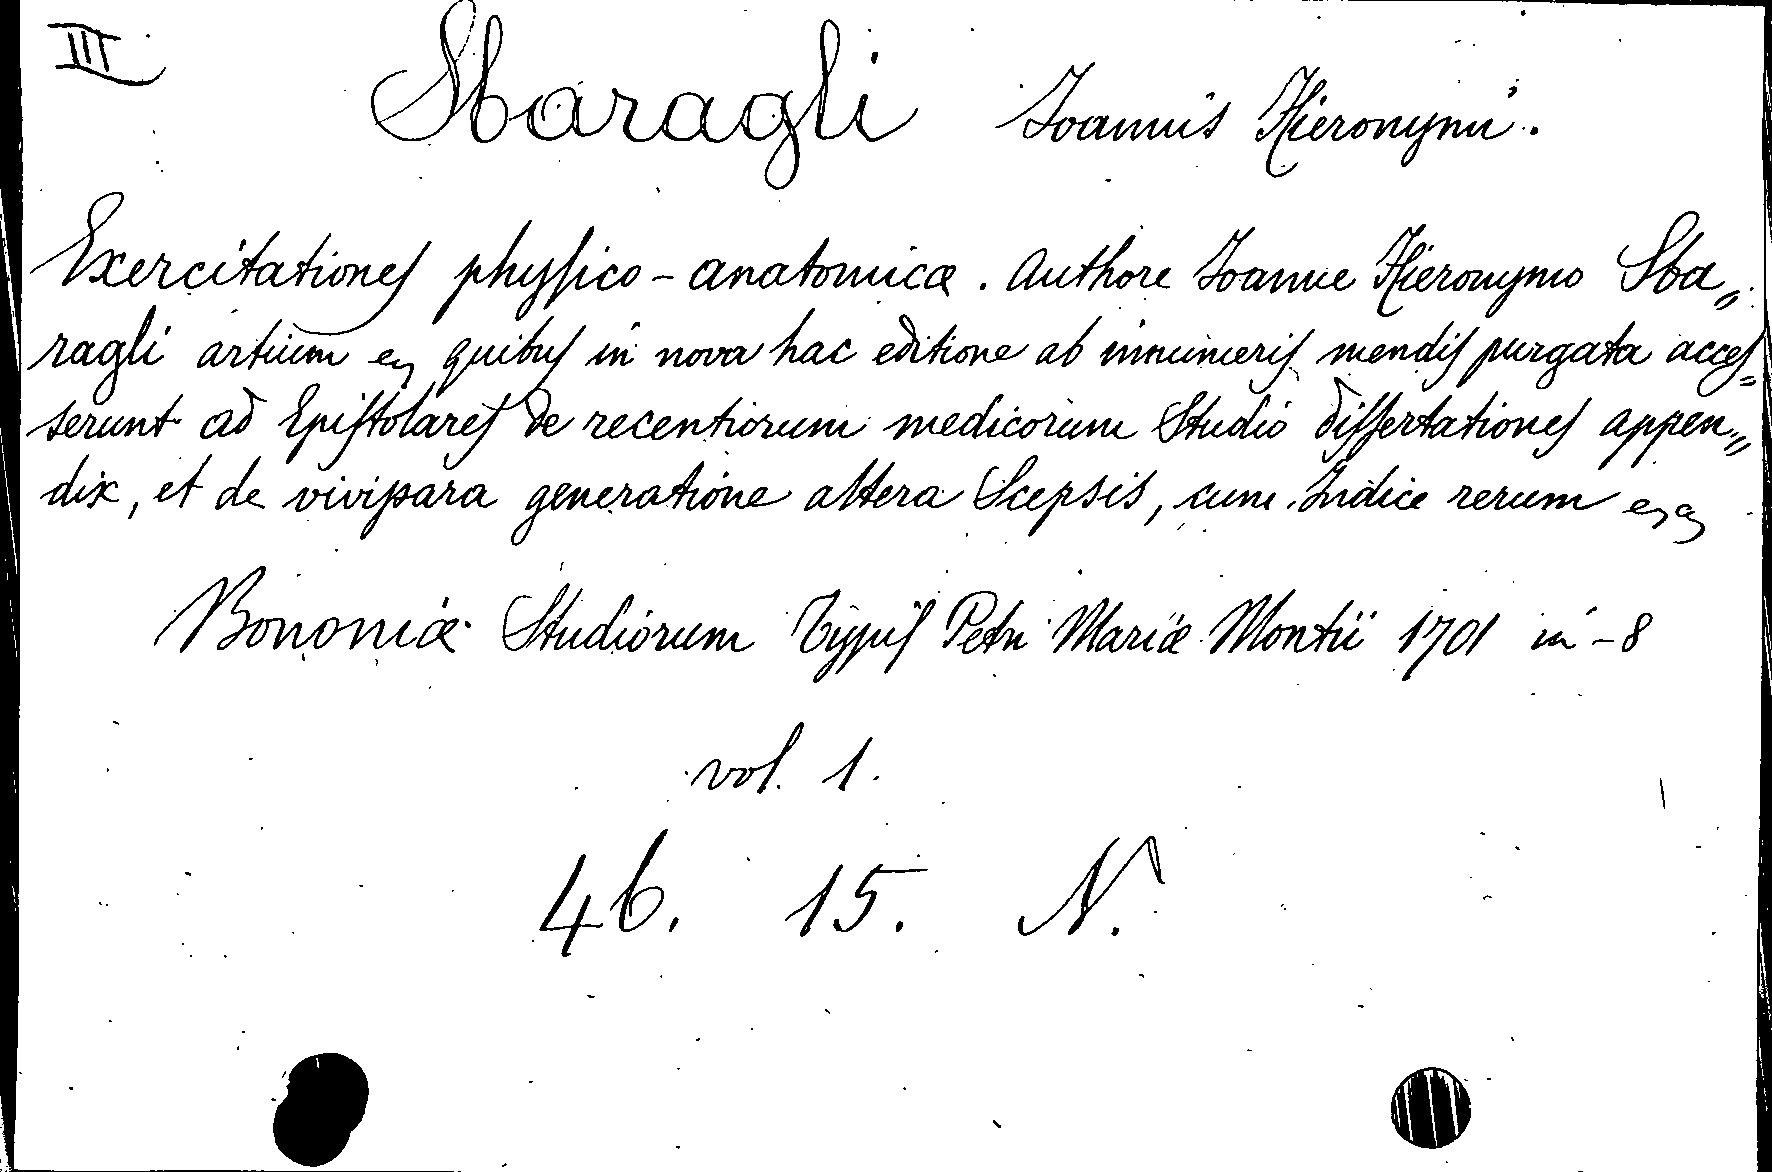 III
Sbaragli Ioannis Hieronymi.
Exercitationes physico-anatomicæ. Authore Ioanne Hieronymo Sba„
ragli artium eg quibus in nova hac editione ab innumeris mendis purgata acces„
serunt ad Epistolares de recentiorum medicorum Studio dissertationes appen„
dix, et de vivipara generatione altera Scepsis, cum Indice rerum eg
Bononiæ Studiorum Typis Petri Mariæ Montii 1701 in-8
vol. 1.
46. 15. N.